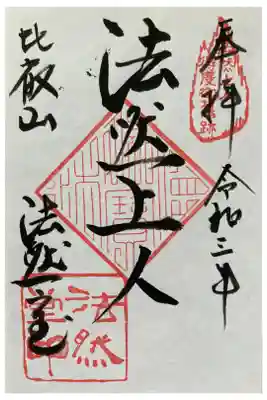 奉拝
令和三年
法然上人
比叡山
法然堂
法然堂印